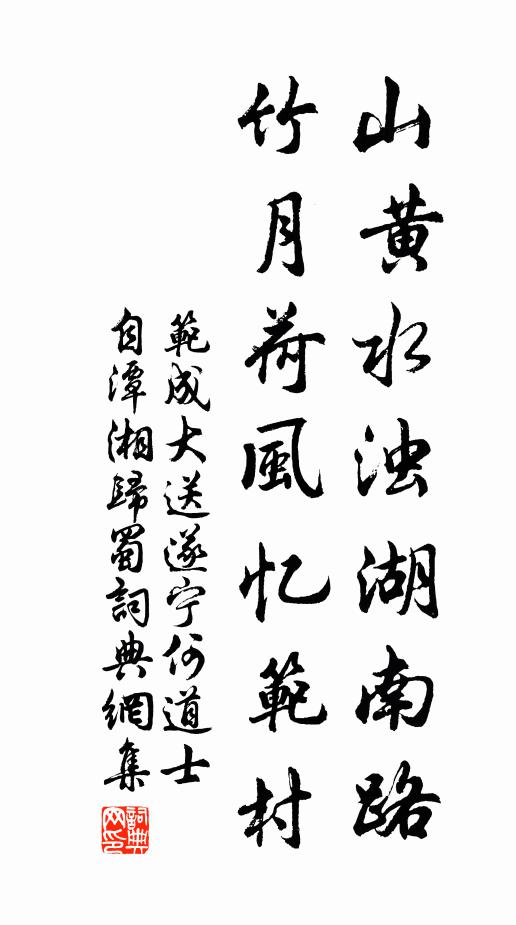 山黄水浊湖南路
竹月荷風忆範村
範成大送遂宁何道士
自潭湘歸蜀詞典網集
詞典
网印